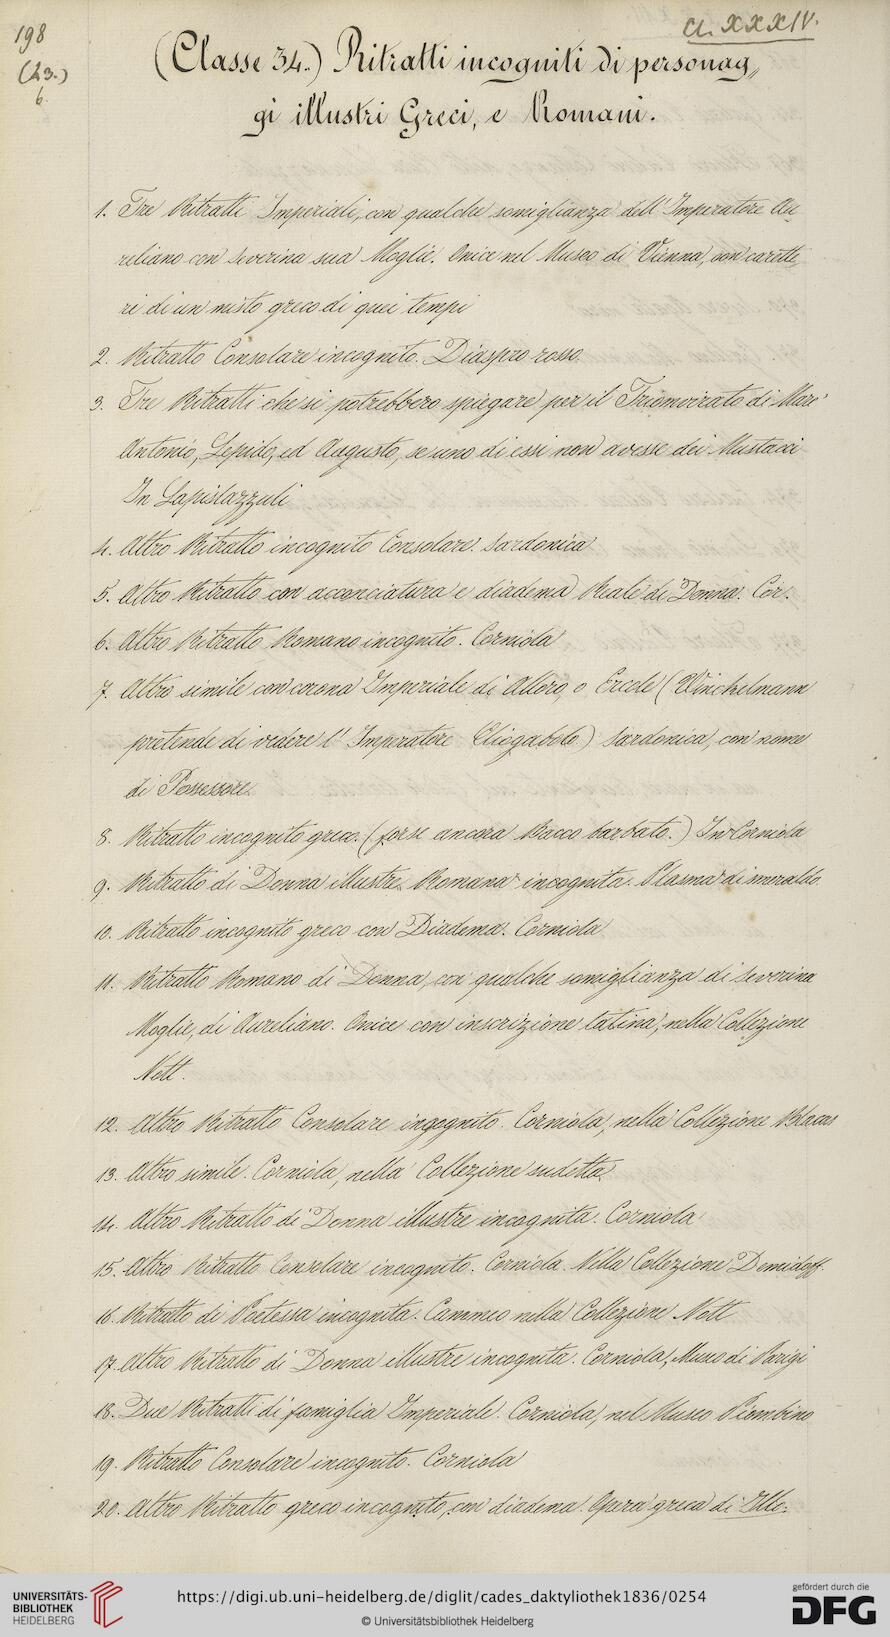 198
Cl. XXXIV.
(23.)
6.
(Classe 34.) Ritratti incogniti di personag„
gi illustri Greci, e Romani.
1. Tre Ritratti Imperiali, con qualche somiglianza dell'Imperatore Au„
reliano con Severina sua Moglie. Onice nel Museo di Vienna, con caratte„
ri di un misto greco di quei tempi
2. Ritratto Consolare incognito. Diaspro rosso.
3. Tre Ritratti che si potrebbero spiegare per il Triumvirato di Marc'
Antonio, Lepido, ed Augusto, se uno di essi non avesse dei Mustacci
In Lapislazzuli
4. Altro Ritratto incognito Consolare. Sardonica
5. Altro Ritratto con acconciatura e diadema Reale di Donna. Cor.
6. Altro Ritratto Romano incognito. Corniola
7. Altro simile con corona Imperiale di Alloro, o Ercole (Winckelmann
pretende di vedere l'Imperatore Eliogabolo.) Sardonica, con nome
di Possessore.
8. Ritratto incognito greco. (forse ancora Bacco barbato.) In Corniola
9. Ritratto di Donna illustre Romana incognita. Plasma di smeraldo.
10. Ritratto incognito greco con Diadema. Corniola
11. Ritratto Romano di Donna, con qualche somiglianza di Severina
Moglie, di Aureliano. Onice con inscrizione latina, nella Collezione
Nott.
12. Altro Ritratto Consolare ingognito. Corniola, nella Collezione Blacas
13. Altro simile. Corniola, nella Collezione sudetta.
14. Altro Ritratto di Donna illustre incognita. Corniola
15. Altro Ritratto Consolare incognito. Corniola. Nella Collezione Demidoff.
16. Ritratto di Poetessa incognita. Cammeo nella Collezione Nott
17. Altro Ritratto di Donna illustre incognita. Corniola, Museo di Parigi
18. Due Ritratti di famiglia Imperiale. Corniola, nel Museo Piombino
19. Ritratto Consolare incognito. Corniola
20. Altro Ritratto greco incognito, con diadema. Opera greca di Ille„
UNIVERSITÄTS-
BIBLIOTHEK
HEIDELBERG
https://digi.ub.uni-heidelberg.de/diglit/cades_daktyliothek1836/0254
© Universitätsbibliothek Heidelberg
gefördert durch die
DFG